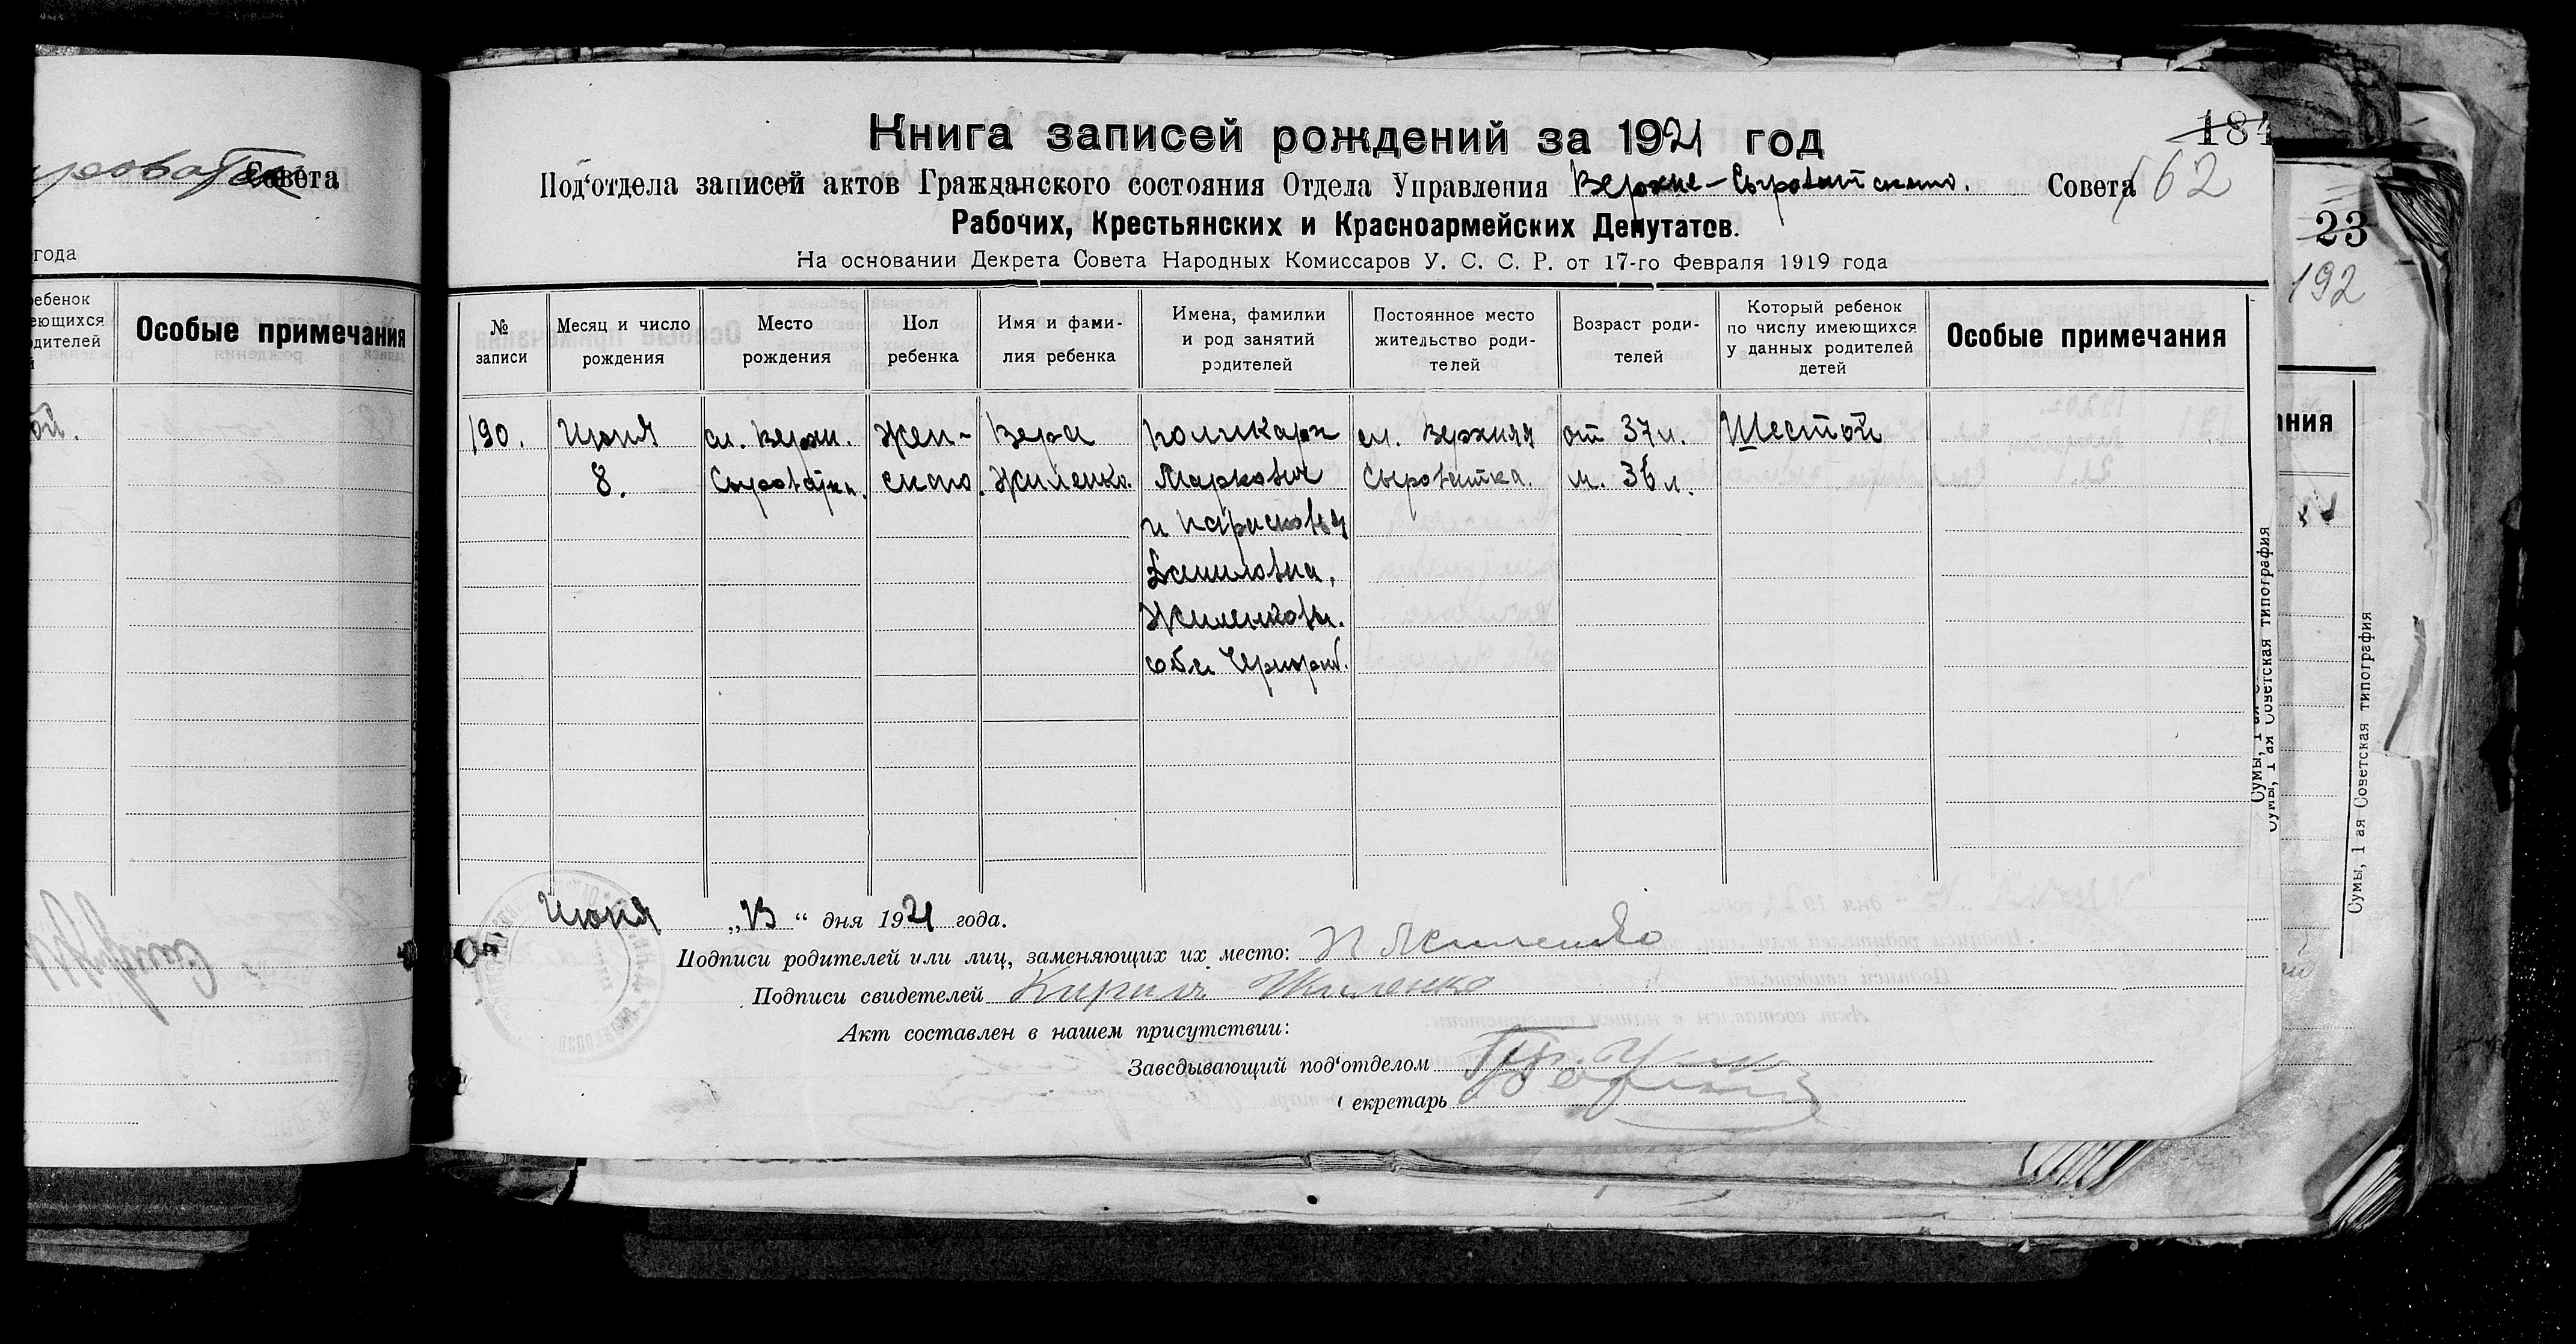 Совета
года
ребенок
еющихся
одителей
Особые примечания
ой.
Книга записей рождений за 1921 год
184
Под‘отдела записей актов Гражданского состояния Отдела Управления Верхне-Сыроватского. Совета
162
Рабочих, Крестьянских и Красноармейских Депутатов.
На основании Декрета Совета Народных Комиссаров У. С. С. Р. от 17-го Февраля 1919 года
№ записи
Месяц и число рождения
Место рождения
Пол ребенка
Имя и фами-лия ребенка
Имена, фамилии и род занятий родителей
Постоянное место жительство роди-телей
Возраст роди-телей
Который ребенок по числу имеющихся у данных родителей детей
Особые примечания
190. Июня сл. Верхн. Жен- Вера Поликарп сл. Верхняя от 37 л. Шестой
8. Сыроватка. ского. Жиленко. Маркович Сыроватка. м. 36 л.
и Парасковья
Даниловна,
Жиленковы.
Июня „13“ дня 1921 года.
Подписи родителей или лиц, заменяющих их место: П Жиленко
Подписи свидетелей Кирилл Жиленко
Акт составлен в нашем присутствии:
Заведывающий под‘отделом
екретарь
Сумы, 1 ая Советская типография
23
192
ния
Сумы, 1 ая Советская типография